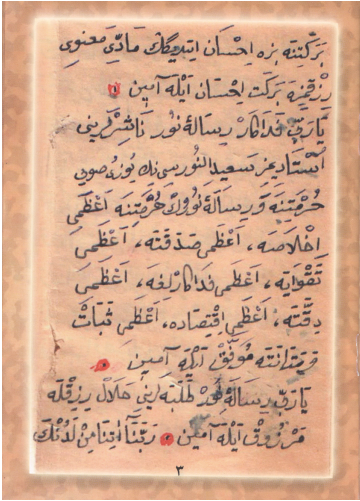 بركتنه بزه احسان ایتدیگك مادّی معنوی
رزقمزه بركت احسان ایله آمین
یا ربّی فداكار رسالۀ نور ناشرلرینی
استادیمز سعید النورسی نك یوزی صویی
حرمتنه و رسالۀ نورك حرمتنه اعظمی
اخلاصه، اعظمی صدقته، اعظمی
تقوایه، اعظمی فداكارلغه، اعظمی
دقّته، اعظمی اقتصاده، اعظمی ثبات
و متانته موفّق ایله آمین
یا ربّی رسالۀ نور طلبه لرینی حلال رزقله
مرزوق ایله آمین ربّنا آتنا من لدنك
٣